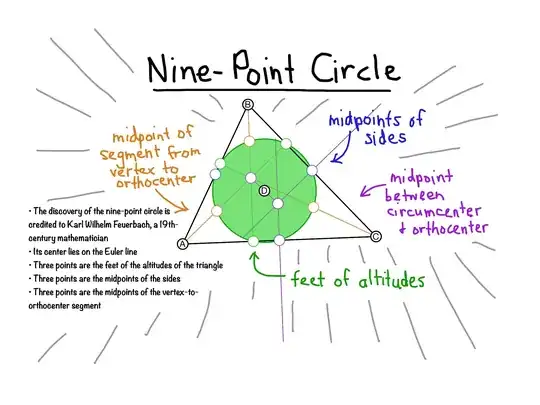 Nine-Point Circle
B
midpoints of
sides
midpoint of
segment from
vertex to
orthocenter
midpoint
between
circumcenter
+ orthocenter
D
A
C
• The discovery of the nine-point circle is
credited to Karl Wilhelm Feuerbach, a 19th-
century mathematician
• Its center lies on the Euler line
• Three points are the feet of the altitudes of the triangle
• Three points are the midpoints of the sides
• Three points are the midpoints of the vertex-to-
orthocenter segment
feet of altitudes